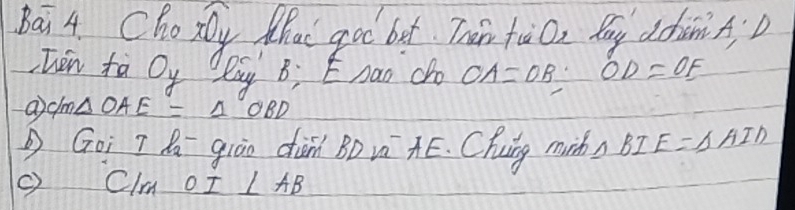 Bài 4. Cho xOy khác góc bẹt. Trên tia Ox lấy 2 điểm A; D
Trên tia Oy lấy B; E sao cho OA = OB; OD = OE
a) c/m Δ OAE = Δ OBD
b) Gọi I là giao điểm BD và AE. Chứng minh Δ BIE = Δ AID
c) C/m OI ⊥ AB